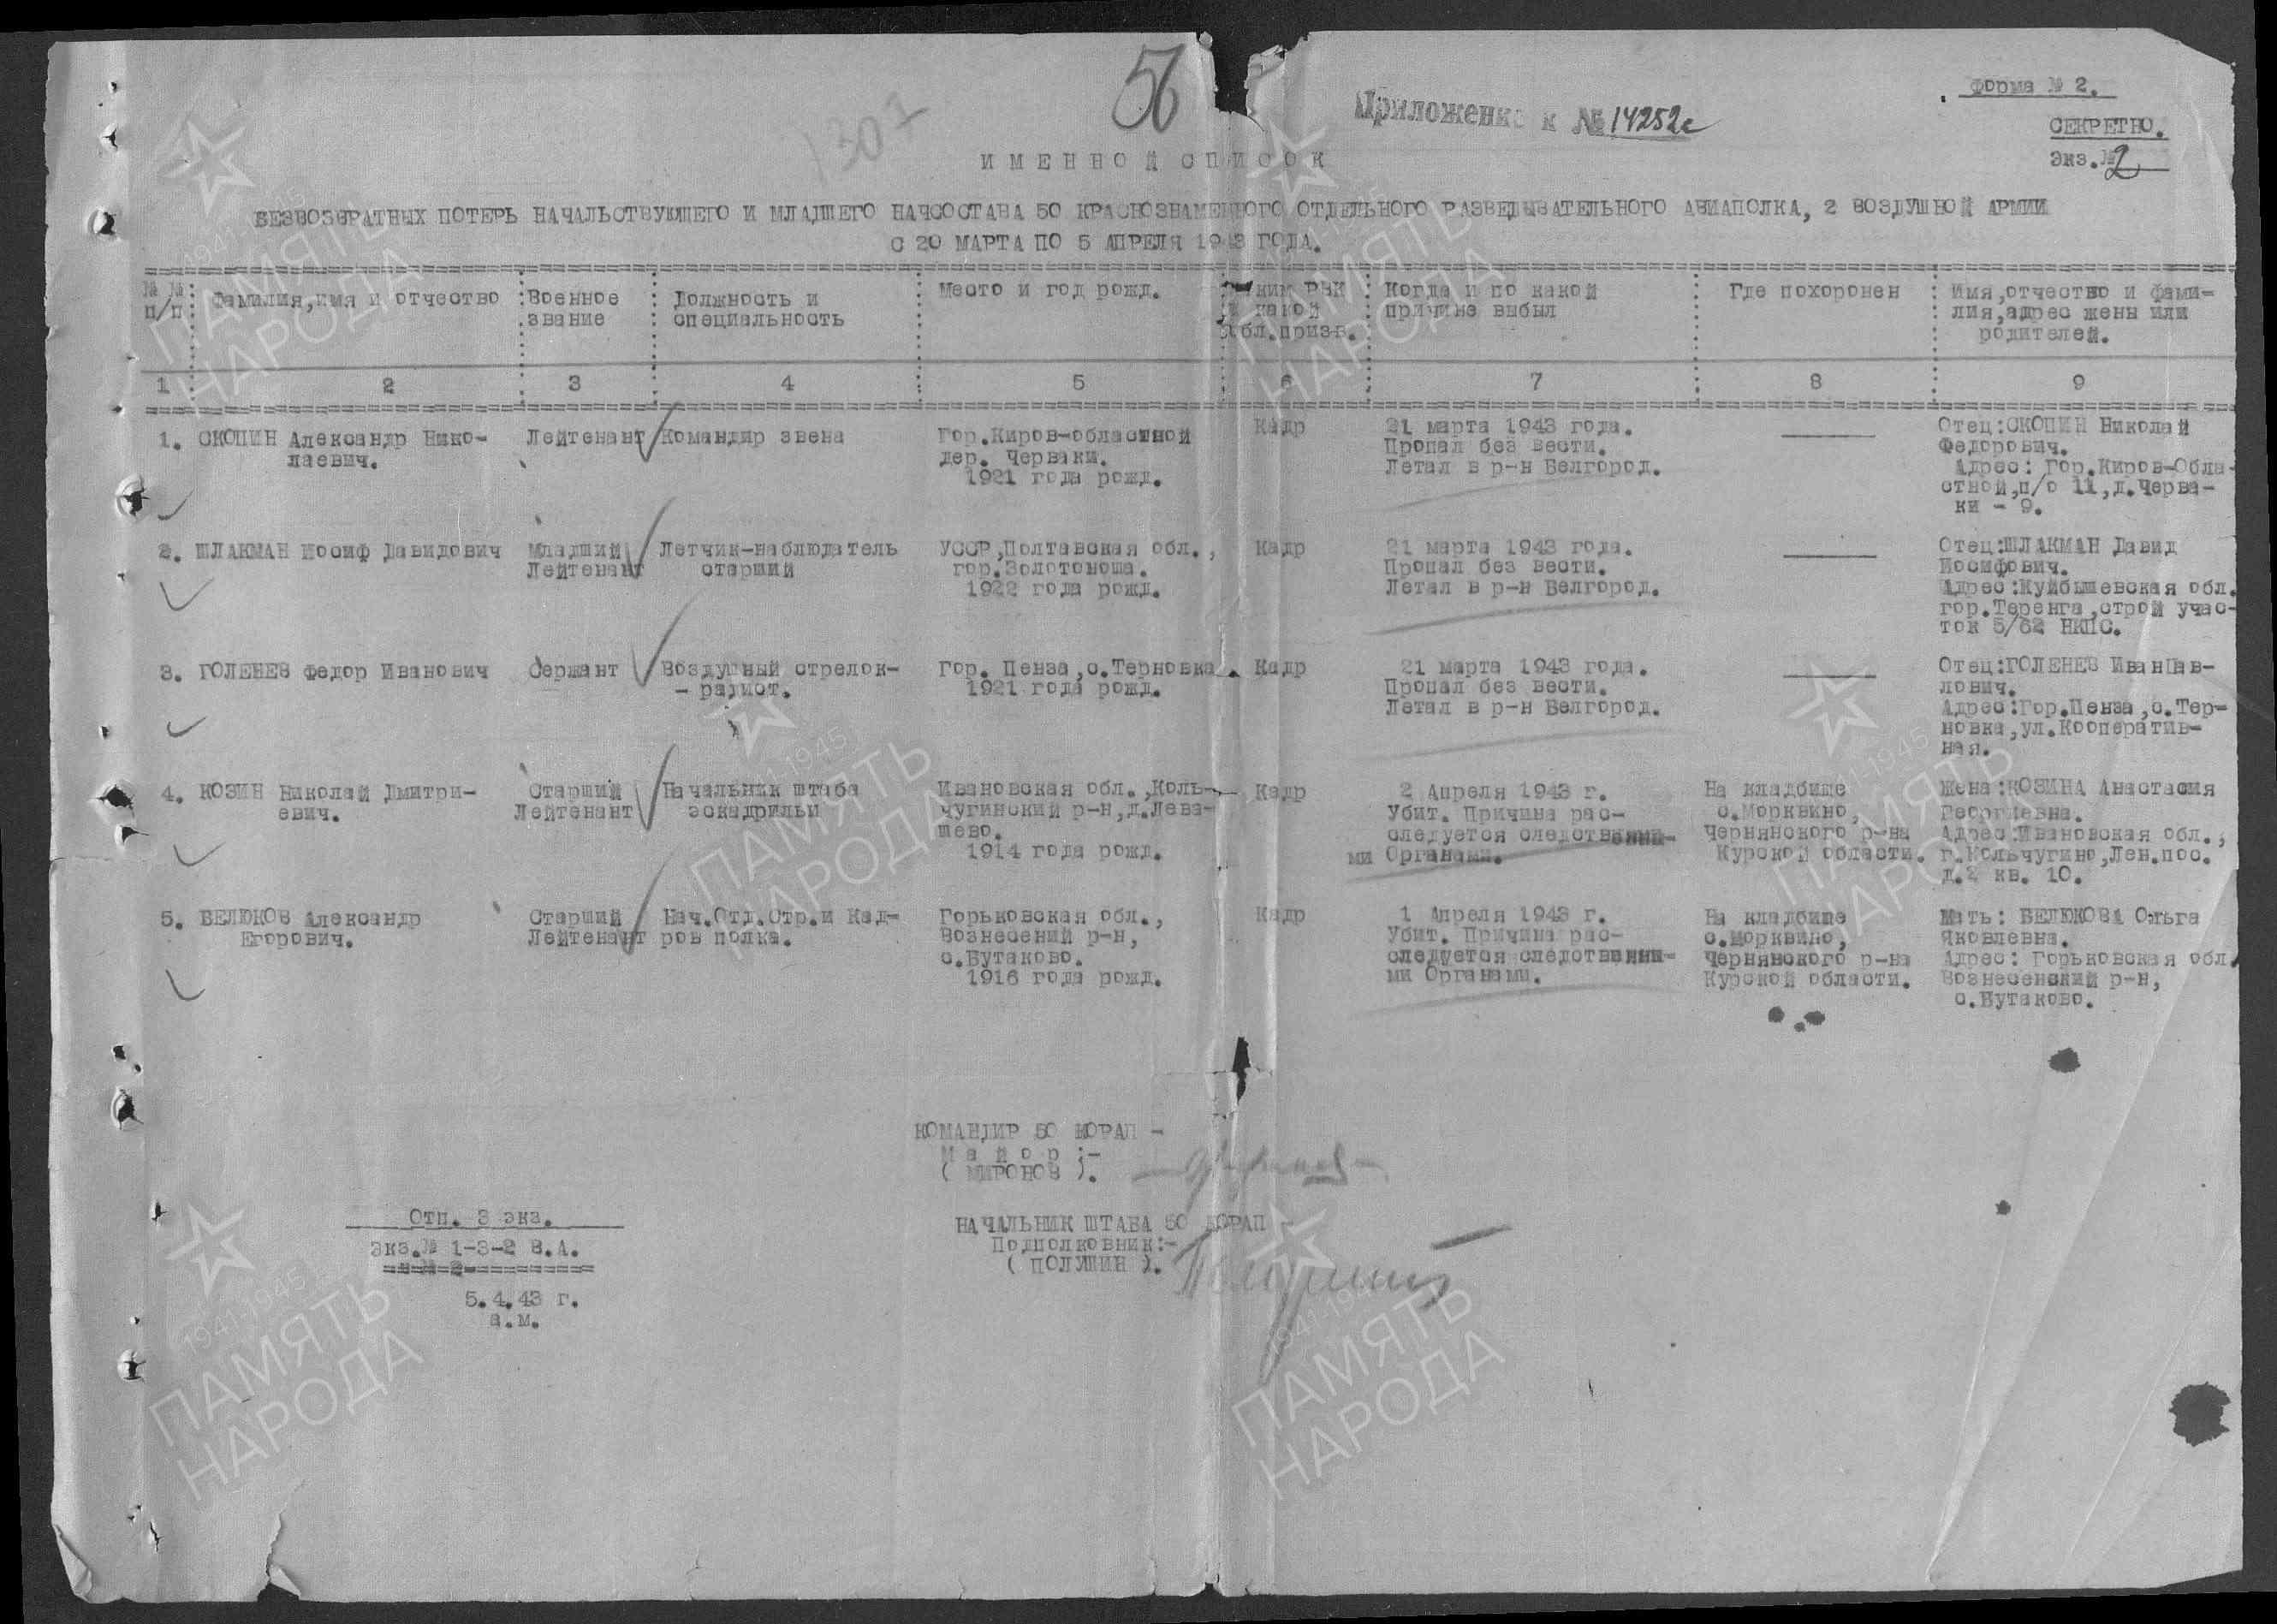 56
1307
Приложение к № 14252с
Форма № 2.
СЕКРЕТНО.
Экз.№ 2
ИМЕННОЙ СПИСОК
БЕЗВОЗВРАТНЫХ ПОТЕРЬ НАЧАЛЬСТВУЮЩЕГО И МЛАДШЕГО НАЧСОСТАВА 50 КРАСНОЗНАМЕННОГО ОТДЕЛЬНОГО РАЗВЕДЫВАТЕЛЬНОГО АВИАПОЛКА, 2 ВОЗДУШНОЙ АРМИИ
С 20 МАРТА ПО 5 АПРЕЛЯ 1943 ГОДА.
№ № п/п
Фамилия,имя и отчество
Военное звание
Должность и специальность
Место и год рожд.
ким РВК и какой обл.призв.
Когда и по какой причине выбыл
Где похоронен
Имя,отчество и фами-
лия,адрес жены или
родителей.
1 2 3 4 5 6 7 8 9
1. СКОПИН Александр Нико-
лаевич.
Лейтенант
Командир звена
Гор.Киров-областной
дер. Черваки.
1921 года рожд.
Кадр
21 марта 1943 года.
Пропал без вести.
Летал в р-н Белгород.
Отец:СКОПИН Николай
Федорович.
Адрес: Гор.Киров-Обла-
стной,п/о 11,д.Черва-
ки - 9.
2. ШЛАКМАН Иосиф Давидович
Младший
Лейтенант
Летчик-наблюдатель
старший
УССР,Полтавская обл.,
гор.Золотоноша.
1922 года рожд.
Кадр
21 марта 1943 года.
Пропал без вести.
Летал в р-н Белгород.
Отец:ШЛАКМАН Давид
Иосифович.
Адрес:Куйбышевская обл.
гор.Теренга,строй учас-
ток 5/62 НКПС.
3. ГОЛЕНЕВ Федор Иванович
Сержант
Воздушный стрелок-
- радист.
Гор. Пенза,с.Терновка.
1921 года рожд.
Кадр
21 марта 1943 года.
Пропал без вести.
Летал в р-н Белгород.
Отец:ГОЛЕНЕВ ИванПав-
лович.
Адрес:Гор.Пенза,с.Тер-
новка,ул.Кооператив-
ная.
4. КОЗИН Николай Дмитри-
евич.
Старший
Лейтенант
Начальник штаба
эскадрильи
Ивановская обл.,Коль-
чугинский р-н,д.Лева-
шево.
1914 года рожд.
Кадр
2 Апреля 1943 г.
Убит. Причина рас-
следуется следственны-
ми Органами.
На кладбище
с.Морквино,
Чернянского р-на
Курской области.
Жена:КОЗИНА Анастасия
Георгиевна.
Адрес:Ивановская обл.,
г.Кольчугино,Лен.пос.
д.2 кв. 10.
5. БЕЛЮКОВ Александр
Егорович.
Старший
Лейтенант
Нач.Отд.Стр.и Кад-
ров полка.
Горьковская обл.,
Вознесений р-н,
с.Бутаково.
1916 года рожд.
Кадр
1 Апреля 1943 г.
Убит. Причина рас-
следуется следственны-
ми Органами.
На кладбище
с.Морквино,
Чернянского р-на
Курской области.
Мать: БЕЛЮКОВА Ольга
Яковлевна.
Адрес: Горьковская обл.
Вознесенский р-н,
с.Бутаково.
КОМАНДИР 50 КОРАП -
Майор:-
( МИРОНОВ ).
НАЧАЛЬНИК ШТАБА 50 КОРАП -
Подполковник:-
( ПОЛУШИН ).
Отп. 3 экз.
Экз.№ 1-3-2 В.А.
5.4.43 г.
а.м.
1941 1945
ПАМЯТЬ
НАРОДА